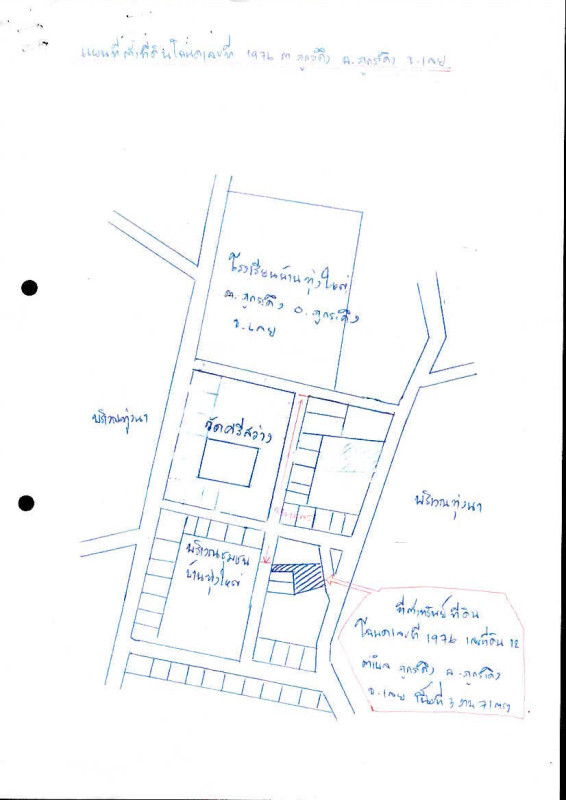 แผนที่ตั้งที่ดินโฉนดเลขที่ 1976 ต ภูกระดึง อ.ภูกระดึง จ.เลย
โรงเรียนบ้านทุ่งใหญ่
ต.ภูกระดึง อ.ภูกระดึง
จ.เลย
บริเวณทุ่งนา
วัดศรีสว่าง
บริเวณทุ่งนา
บริเวณชุมชน
บ้านทุ่งใหญ่
ที่ตั้งทรัพย์ที่ดิน
โฉนดเลขที่ 1976 เลขที่ดิน 12
ตำบล ภูกระดึง อ.ภูกระดึง
จ.เลย เนื้อที่ 3 งาน